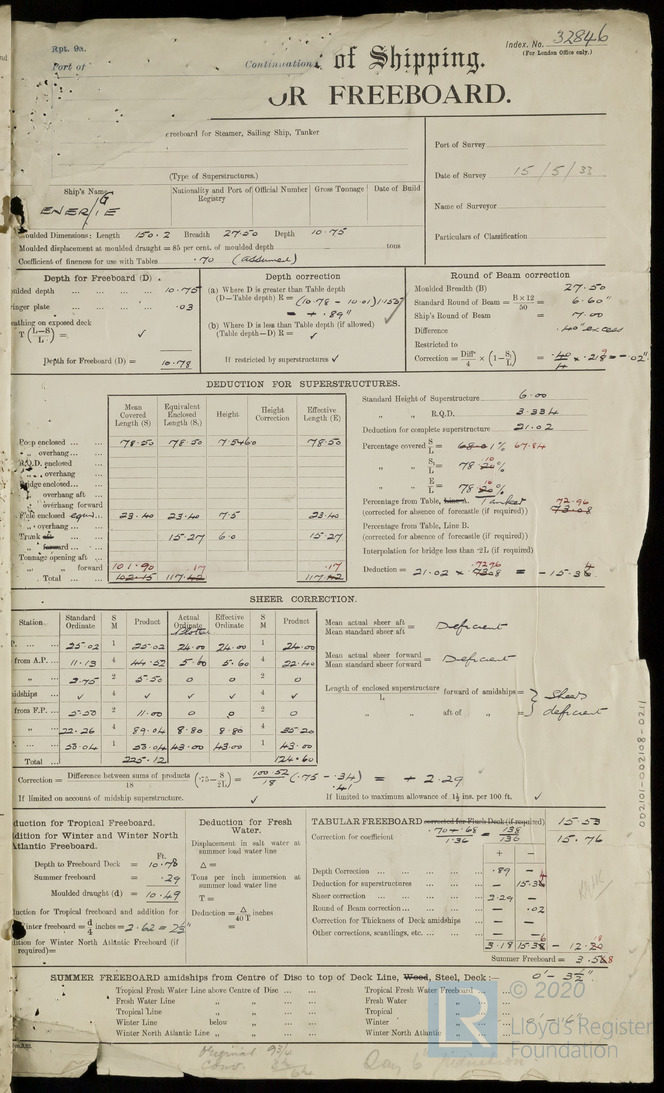 Rpt. 9a.
Port of
Continuation
of Shipping.
Index. No. 32846
(For London Office only.)
OR FREEBOARD.
Freeboard for Steamer, Sailing Ship, Tanker
(Type of Superstructures.)
Port of Survey
Date of Survey 15/5/33
Name of Surveyor
Particulars of Classification
Ship's Name
Nationality and Port of Registry
Official Number
Gross Tonnage
Date of Build
ENERGIE
Moulded Dimensions: Length 150.2 Breadth 27.50 Depth 10.75
Moulded displacement at moulded draught = 85 per cent. of moulded depth tons
Coefficient of fineness for use with Tables .70 (assumed)
Depth for Freeboard (D)
oulded depth ... 10.75
ringer plate ... .03
eathing on exposed deck
T (L-S/L) = ✓
Depth for Freeboard (D) = 10.78
Depth correction
(a) Where D is greater than Table depth
(D—Table depth) R = (10.78 - 10.01) 1.155
= + .89"
(b) Where D is less than Table depth (if allowed)
(Table depth—D) R = ✓
If restricted by superstructures ✓
Round of Beam correction
Moulded Breadth (B) 27.50
Standard Round of Beam = B×12/50 = 6.60"
Ship's Round of Beam = 7.00
Difference .40" excess
Restricted to
Correction = Diff/4 × (1 - S₁/L) = .40/4 × .219 = -.02"
DEDUCTION FOR SUPERSTRUCTURES.
Mean Covered Length (S)
Equivalent Enclosed Length (S₁)
Height
Height Correction
Effective Length (E)
Poop enclosed ... 78.50 78.50 7.5460 78.50
" overhang...
R.Q.D. enclosed
" overhang
Bridge enclosed...
" overhang aft
" overhang forward
F'cle enclosed equiv... 23.40 23.40 7.5 23.40
" overhang ...
Trunk aft ... 15.27 6.0 15.27
" forward ...
Tonnage opening aft ...
" " forward 101.90 .17 .17
Total ... 102.15 117.42 117.42
Standard Height of Superstructure 6.00
" " R.Q.D. 3.334
Deduction for complete superstructure 21.02
Percentage covered S/L = 68.01% 67.84
" " S₁/L = 78.20% 10
" " E/L = 78.20% 10
Percentage from Table, Line A. Tanker 72.96
(corrected for absence of forecastle (if required)) 73.08
Percentage from Table, Line B.
(corrected for absence of forecastle (if required))
Interpolation for bridge less than ·2L (if required)
Deduction = 21.02 × .7308 .7296 = -15.36 4
SHEER CORRECTION.
Station.
Standard Ordinate
S M
Product
Actual Ordinate
Effective Ordinate
S M
Product.
P. ... 25.02 1 25.02 24.00 24.00 1 24.00
from A.P. ... 11.13 4 44.52 5.60 5.60 4 22.40
" ... 2.75 2 5.50 0 0 2 0
idships ... ✓ 4 ✓ ✓ ✓ 4 ✓
from F.P. ... 5.50 2 11.00 0 0 2 0
" ... 22.26 4 89.04 8.80 8.80 4 35.20
P. ... 50.04 1 50.04 43.00 43.00 1 43.00
Total ... 225.12 124.60
Mean actual sheer aft
Mean standard sheer aft = Deficient
Mean actual sheer forward
Mean standard sheer forward = Deficient
Length of enclosed superstructure forward of amidships =
L " aft of " =
Sheer deficient
Correction = Difference between sums of products/18 (·75 - S/2L) = 100.52/18 (.75 - .34) = + 2.29
.41
If limited on account of midship superstructure. ✓
If limited to maximum allowance of 1½ ins. per 100 ft. ✓
duction for Tropical Freeboard.
ddition for Winter and Winter North
Atlantic Freeboard.
Ft.
Depth to Freeboard Deck = 10.78
Summer freeboard = .29
Moulded draught (d) = 10.49
duction for Tropical freeboard and addition for
Winter freeboard = d/4 inches = 2.62 = 2½"
dition for Winter North Atlantic Freeboard (if required) =
Deduction for Fresh Water.
Displacement in salt water at summer load water line
Δ =
Tons per inch immersion at summer load water line
T =
Deduction = Δ/40 T inches
=
TABULAR FREEBOARD corrected for Flush Deck (if required) 15.53
Correction for coefficient .70 + .68/1.36 = 1.38/1.36 15.76
+ −
Depth Correction ... .89 −
Deduction for superstructures ... − 15.36 4
Sheer correction ... 2.29 −
Round of Beam correction ... − .02
Correction for Thickness of Deck amidships − −
Other corrections, scantlings, etc. ... − −
3.18 15.38 6 − 12.20 18
Summer Freeboard = 3.56 8
SUMMER FREEBOARD amidships from Centre of Disc to top of Deck Line, Wood, Steel, Deck :— 0'- 3½"
Tropical Fresh Water Line above Centre of Disc ...
Fresh Water Line " " ...
Tropical Line " " ...
Winter Line below " ...
Winter North Atlantic Line " " ...
Tropical Fresh Water Freeboard ...
Fresh Water "
Tropical "
Winter "
Winter North Atlantic "
LR
© 2020
Lloyd's Register
Foundation
002101-002108-0211
Original